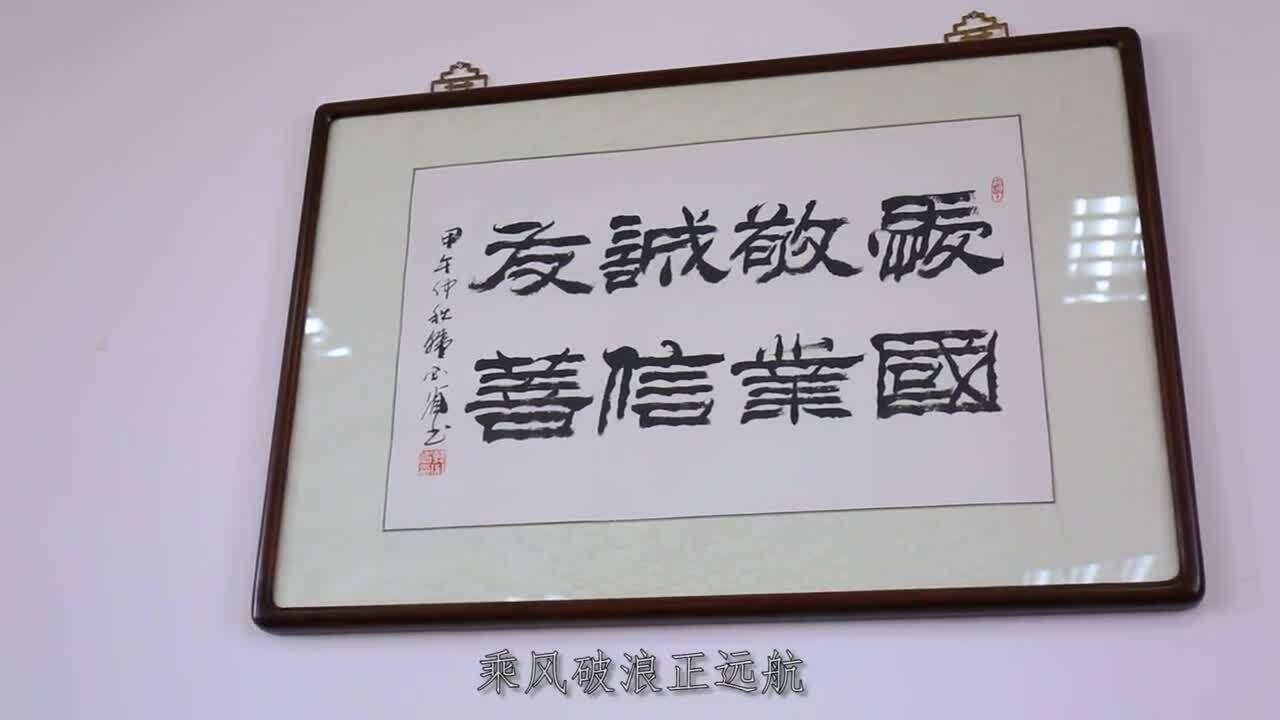 愛國
敬業
誠信
友善
甲午仲秋
乘风破浪正远航